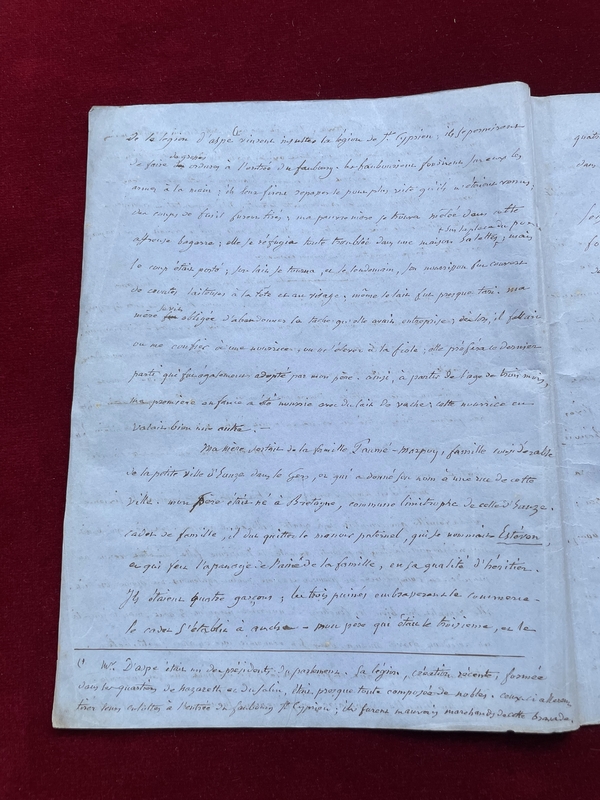 de la légion d'aspe (1) vinrent insulter la légion de St. Cyprien; ils se permirent
de faire des gestes à l'entrée du faubourg. les faubouriens fondirent sur eux les
armes à la main; ils leur firent repasser le pont plus vite qu'ils n'étaient venus;
des coups de fusil furent tirés; ma pauvre mère se trouva mêlée dans cette
affreuse bagarre; elle se réfugia toute troublée dans une maison sur la place du pour
la laiter, mais
le coup était porté; son lait se tourna, et le lendemain, son nourrisson fut couvert
de croûtes laiteuses à la tête et au visage. même le lait fut presque tari. ma
mère se vit obligée d'abandonner la tâche qu'elle avait entreprise; dès lors, il fallait
ou me confier à une nourrice, ou m'élever à la fiole; elle préféra ce dernier
parti qui fut également adopté par mon père. ainsi, à partir de l'age de trois mois,
ma première enfance a été nourrie avec du lait de vache; cette nourrice en
valait bien une autre. —
Ma mère sortait de la famille famille considérable
de la petite ville d'Eauze dans le Gers, et qui a donné son nom à une rue de cette
ville. mon père était né à Bretagne, commune limitrophe de celle d'Eauze.
cadet de famille, il dut quitter le manoir paternel, qui se nommait Estéron,
et qui fut l'apanage de l'ainé de la famille, en sa qualité d'héritier.
Ils étaient quatre garçons; les trois puinés embrassèrent le commerce.
le cadet s'établit à auch — mon père qui était le troisième, et le
(1) Mr. D'aspe était un des présidents du parlement. Sa légion, création récente, formée
dans les quartiers de Nazareth et du Salin, était presque toute composée de nobles. ceux-ci allèrent
tirer leurs culottes à l'entrée du faubourg St. Cyprien; ils furent mauvais marchands de cette bravade,